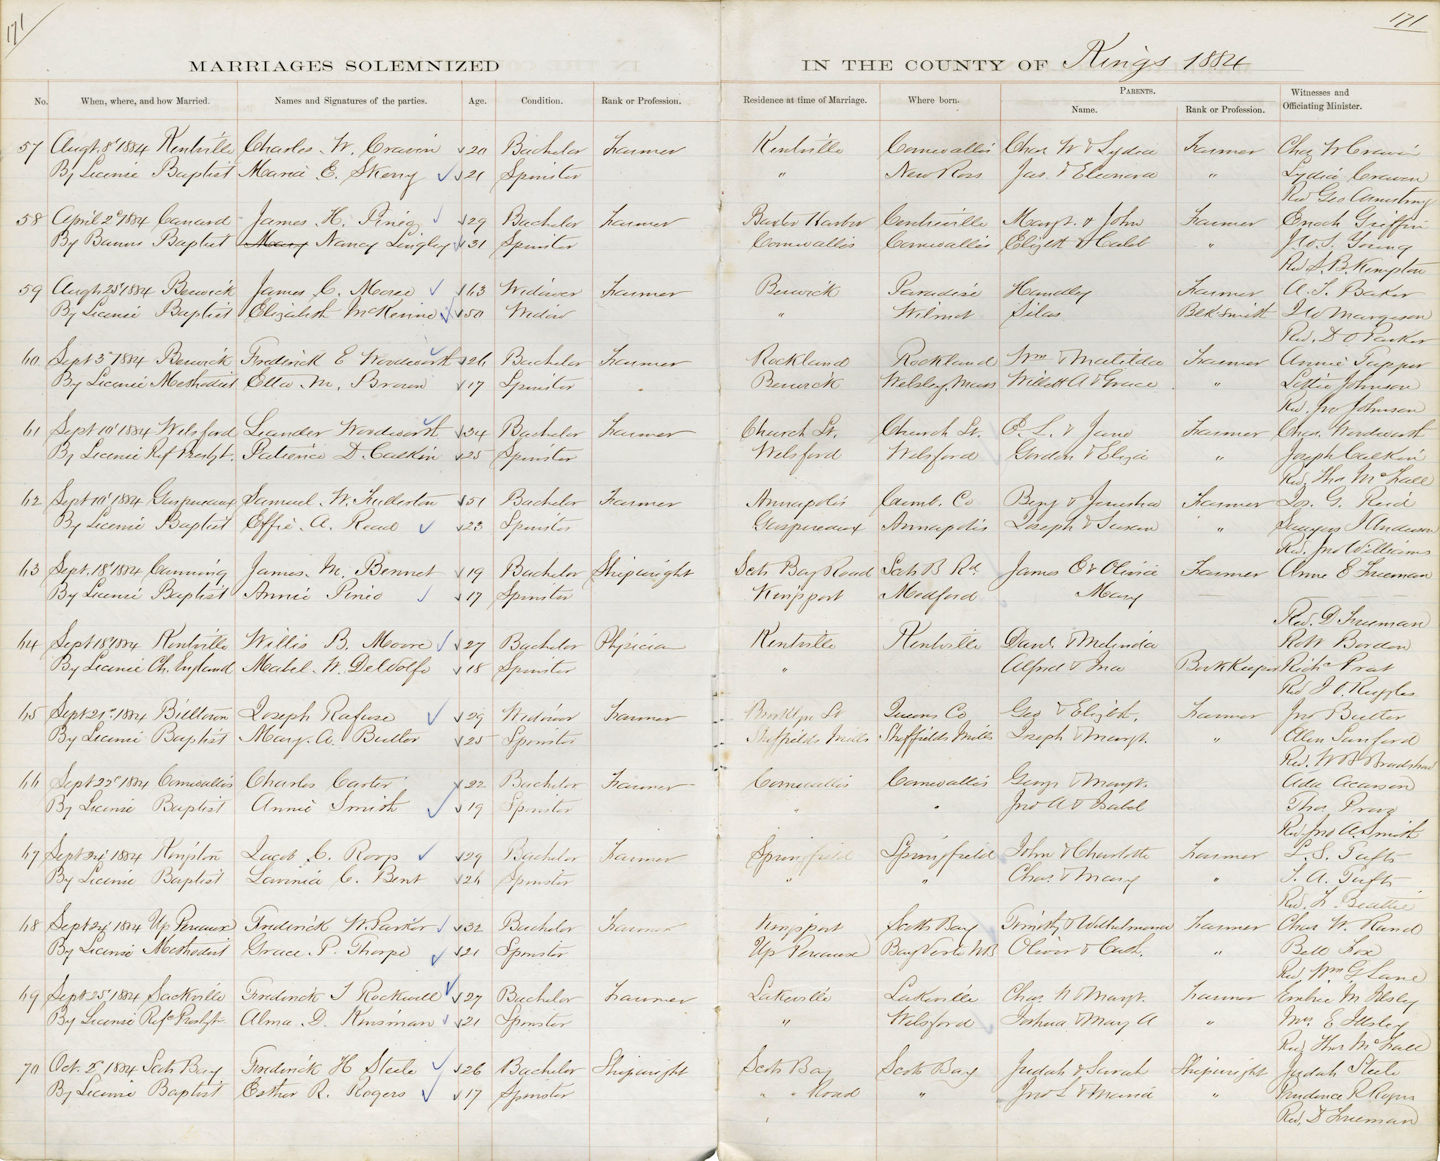 171
171
MARRIAGES SOLEMNIZED IN THE COUNTY OF Kings 1884
No. When, where, and how Married. Names and Signatures of the parties. Age. Condition. Rank or Profession. Residence at time of Marriage. Where born. PARENTS. Name. Rank or Profession. Witnesses and Officiating Minister.
57 Augt. 8' 1884 Kentville Charles W. Craven 20 Bachelor Farmer Kentville Cornwallis Chas W & Lydia Farmer Chas W Craven
By License Baptist Maria E. Skerry 21 Spinster " New Ross Jas. & Eleonora " Lydia Craven
Rev Geo Armstrong
58 April 2d 1884 Canard James H. Pineo 29 Bachelor Farmer Baxter Harbor Centreville Margt. & John Farmer Enoch Griffin
By Banns Baptist Mary Nancy Lingley 31 Spinster Cornwallis Cornwallis Elizth & Caleb " J. W. S. Young
Rev S. B. Kempton
59 Augt 25' 1884 Berwick James C. Morse 63 Widower Farmer Berwick Paradise Handley Farmer A. S. Baker
By License Baptist Elizabeth McKenne 50 Widow " Wilmot Silas Blk Smith Margeson
Rev. D O Parker
60 Sept 3' 1884 Berwick Frederick E Wordworth 26 Bachelor Farmer Rockland Rockland Wm & Matilda Farmer Annie Tupper
By License Methodist Etta M. Brown 17 Spinster Berwick Welsley, Mass Willett A & Grace " Lettie Johnson
Rev. Jno Johnson
61 Sept 10' 1884 Welsford Leander Wordworth 34 Bachelor Farmer Church St. Church St. E. L. & Jane Farmer Chas. Wordworth
By License Ref Presbyt. Patience D. Calkin 25 Spinster Welsford Welsford Gordon & Eliza " Joseph Calkin
Rev. Thos McFall
62 Sept 10' 1884 Gaspereaux Samuel W. Fullerton 51 Bachelor Farmer Annapolis Cumb. Co Benj & Jerusha Farmer Jos. G. Reid
By License Baptist Effie A. Read 23 Spinster Gaspereaux Annapolis Joseph & Susan " Anderson
Rev. Jno Williams
63 Sept. 18' 1884 Canning James. M. Bennet 19 Bachelor Shipwright Scots Bay Road Scots B Rd. James O & Olivia Farmer Anne E Freeman
By License Baptist Annie Pineo 17 Spinster Kingsport Medford Mary
Rev. D. Freeman
64 Sept 18' 1884 Kentville Willis B. Moore 27 Bachelor Physician Kentville Kentville Danl. & Melinda Robt W Borden
By License Ch. England Mabel. W. DeWolfe 18 Spinster " Alfred & Ina Book Keeper Richd Prat
Rev J. O. Ruggles
65 Sept 21st 1884 Billtown Joseph Rafuse 29 Widower Farmer Brooklyn St Queens Co Geo & Elizbth. Farmer Jno Butler
By License Baptist Mary. A. Butler 25 Spinster Sheffields Mills Sheffields Mills Joseph & Margt. " Allen Sanford
Rev. W B Bradshaw
66 Sept 22d 1884 Cornwallis Charles Carter 22 Bachelor Farmer Cornwallis Cornwallis George & Margt.
By License Baptist Annie Smith 19 Spinster " " Jno A & Isabel Thos
Rev. Jno A. Smith
67 Sept 24' 1884 Kingston Jacob C. Roop 29 Bachelor Farmer Springfield Springfield John & Charlotte Farmer L. S. Tufts
By License Baptist Lavinia C. Bent 26 Spinster " " Chas. & Mary " S. A. Tufts
Rev. F. Beattie
68 Sept 24' 1884 Up Pereaux Frederick W. Parker 32 Bachelor Farmer Kingsport Scotts Bay Timothy & Wilhelmina Farmer Chas W. Rand
By License Methodist Grace. P. Thorpe 21 Spinster Up Pereaux Bay Verte NB Oliver & Cath. " Bell Fox
Rev. Wm G Lane
69 Sept 25' 1884 Sackville Frederick J Rockwell 27 Bachelor Farmer Lakeville Lakeville Chas. W. Margt. Farmer M Ilsley
By License Refd Presbyt Alma D. Kinsman 21 Spinster " Welsford Joshua & Mary A " Mrs E Illsley
Rev Thos McFall
70 Oct. 2d 1884 Scots Bay Frederick H Steele 26 Bachelor Shipwright Scots Bay Scots Bay Judah & Sarah Shipwright Judah Steele
By License Baptist Esther R. Rogers 17 Spinster " " Road " Jno S & Maria " Prudence R Rogers
Rev. D Freeman